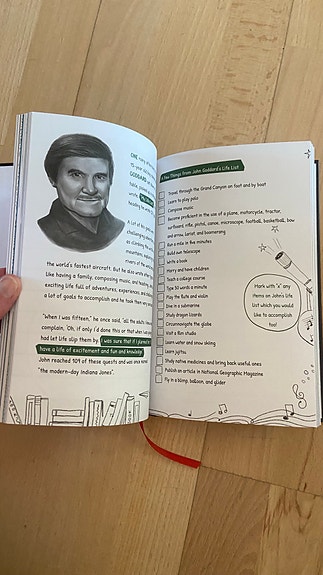 ONE rainy
15-year old
GODDARD
table, poured
wrote
heading he wrote
A Lot of his goals
challenging adventures
as climbing the world's
mountains, exploring
rivers of the
the world's fastest aircraft. But he also wrote
Like having a family, composing music, and reading
exciting life full of adventures, experiences, and
a lot of goals to accomplish and he took them
"When I was fifteen," he once said, "all the adults
complain, 'Oh, if only I'd done this or that when I was
had let life slip them by. I was sure that if I planned
have a life of excitement and fun and knowledge
John reached 109 of these quests and was once named
"the modern-day Indiana Jones".
A Few Things From John Goddard's Life List
Travel through the Grand Canyon on foot and by boat
Learn to play polo
Compose music
Become proficient in the use of a plane, motorcycle, tractor,
surfboard, rifle, pistol, canoe, microscope, football, basketball, bow
and arrow, lariat, and boomerang
Run a mile in five minutes
Build own telescope
Write a book
Marry and have children
Teach a college course
Type 50 words a minute
Play the flute and violin
Dive in a submarine
Study dragon lizards
Circumnavigate the globe
Visit a film studio
Learn water and snow skiing
Learn jujitsu
Study native medicines and bring back useful ones
Publish an article in National Geographic Magazine
Fly in a blimp, balloon, and glider
Mark with "x" any
items on John's life
List which you would
like to accomplish
too!